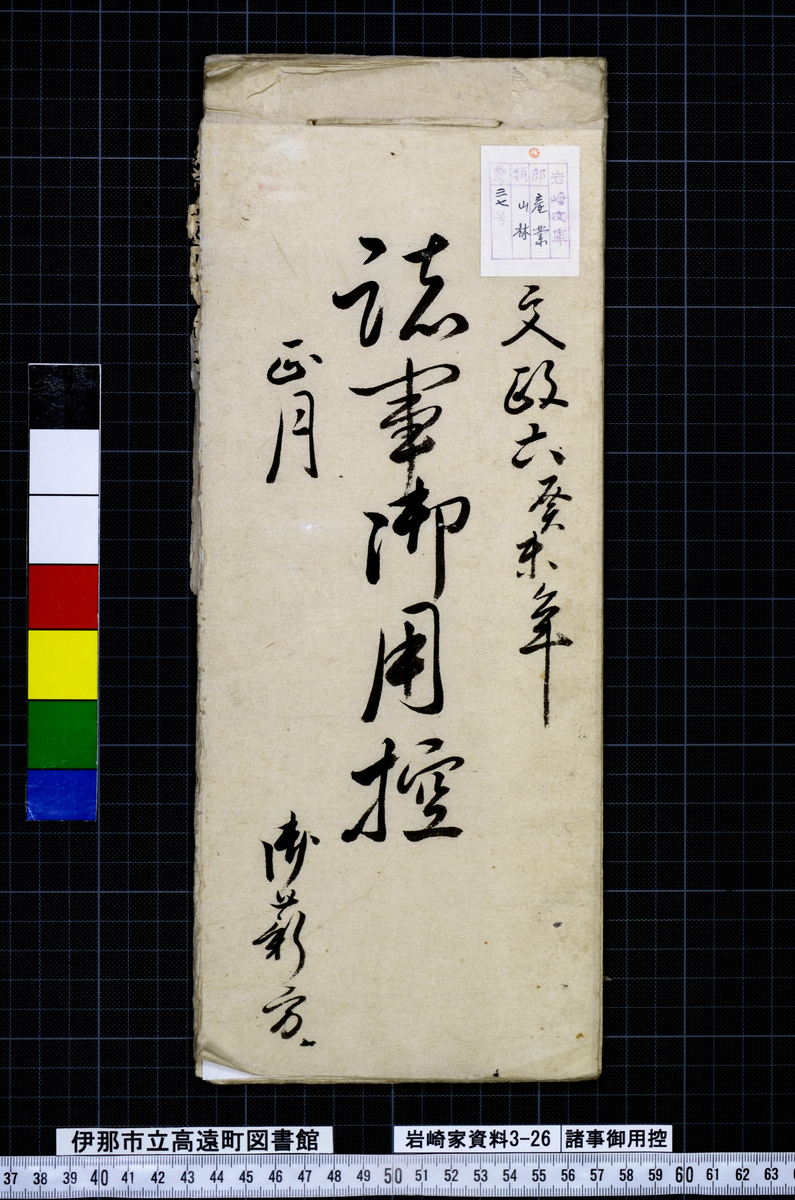 岩崎文庫
部 産業
類 山林
三七号
文政六癸未年
諸事御用控
正月
御薪方
伊那市立高遠町図書館
岩崎家資料3-26
諸事御用控
37 38 39 40 41 42 43 44 45 46 47 48 49 50 51 52 53 54 55 56 57 58 59 60 61 62 63